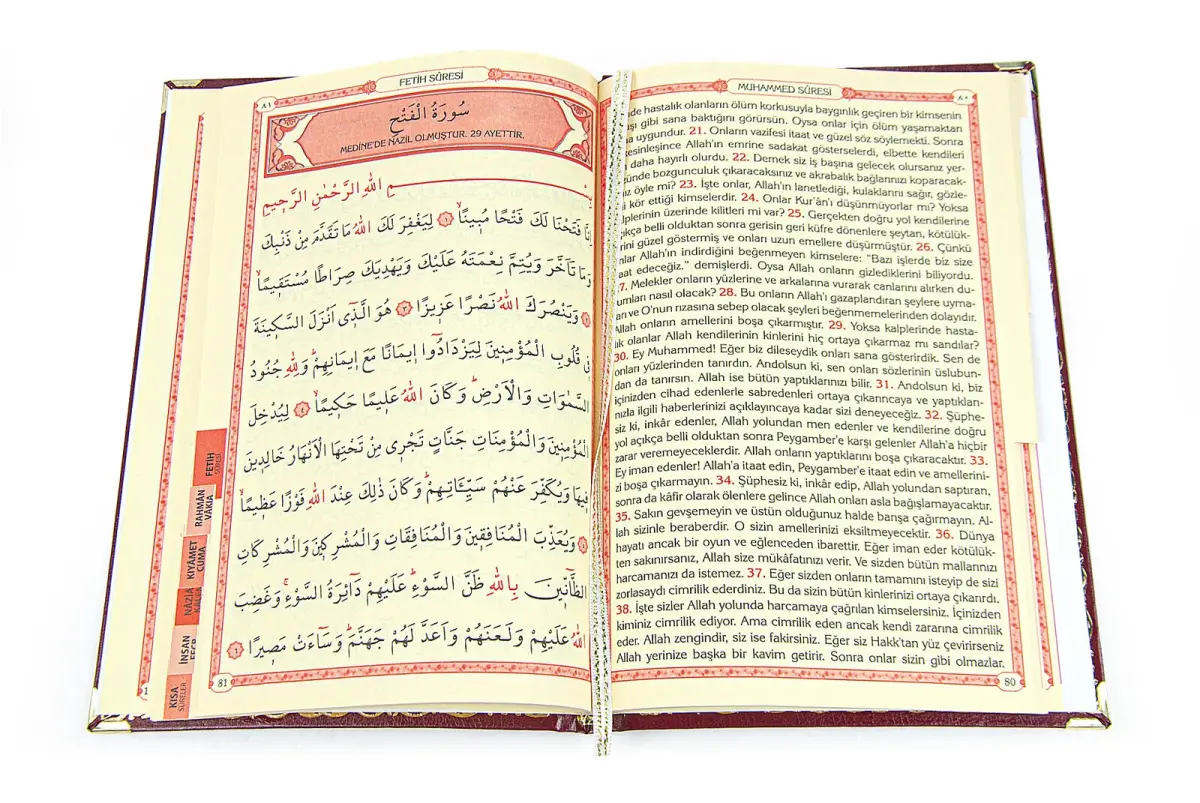 MUHAMMED SÛRESİ
٨٠
de hastalık olanların ölüm korkusuyla baygınlık geçiren bir kimsenin
gibi sana baktığını görürsün. Oysa onlar için ölüm yaşamaktan
uygundur. 21. Onların vazifesi itaat ve güzel söz söylemekti. Sonra
kesinleşince Allah'ın emrine sadakat gösterselerdi, elbette kendileri
daha hayırlı olurdu. 22. Demek siz iş başına gelecek olursanız yer-
yüzünde bozgunculuk çıkaracaksınız ve akrabalık bağlarınızı koparacak-
öyle mi? 23. İşte onlar, Allah'ın lanetlediği, kulaklarını sağır, gözle-
kör ettiği kimselerdir. 24. Onlar Kur'ân'ı düşünmüyorlar mı? Yoksa
kalplerinin üzerinde kilitleri mi var? 25. Gerçekten doğru yol kendilerine
açıkça belli olduktan sonra gerisin geri küfre dönenlere şeytan, kötülük-
lerini güzel göstermiş ve onları uzun emellere düşürmüştür. 26. Çünkü
onlar Allah'ın indirdiğini beğenmeyen kimselere: "Bazı işlerde biz size
itaat edeceğiz." demişlerdi. Oysa Allah onların gizlediklerini biliyordu.
27. Melekler onların yüzlerine ve arkalarına vurarak canlarını alırken du-
rumları nasıl olacak? 28. Bu onların Allah'ı gazaplandıran şeylere uyma-
ları ve O'nun rızasına sebep olacak şeyleri beğenmemelerinden dolayıdır.
Allah onların amellerini boşa çıkarmıştır. 29. Yoksa kalplerinde hasta-
lık olanlar Allah kendilerinin kinlerini hiç ortaya çıkarmaz mı sandılar?
30. Ey Muhammed! Eğer biz dileseydik onları sana gösterirdik. Sen de
onları yüzlerinden tanırdın. Andolsun ki, sen onları sözlerinin üslubun-
dan da tanırsın. Allah ise bütün yaptıklarınızı bilir. 31. Andolsun ki, biz
içinizden cihad edenlerle sabredenleri ortaya çıkarıncaya ve yaptıkları-
nızla ilgili haberlerinizi açıklayıncaya kadar sizi deneyeceğiz. 32. Şüphe-
siz ki, inkâr edenler, Allah yolundan men edenler ve kendilerine doğru
yol açıkça belli olduktan sonra Peygamber'e karşı gelenler Allah'a hiçbir
zarar veremeyeceklerdir. Allah onların yaptıklarını boşa çıkaracaktır. 33.
Ey iman edenler! Allah'a itaat edin, Peygamber'e itaat edin ve amellerini-
zi boşa çıkarmayın. 34. Şüphesiz ki, inkâr edip, Allah yolundan saptıran,
sonra da kâfir olarak ölenlere gelince Allah onları asla bağışlamayacaktır.
35. Sakın gevşemeyin ve üstün olduğunuz halde barışa çağırmayın. Al-
lah sizinle beraberdir. O sizin amellerinizi eksiltmeyecektir. 36. Dünya
hayatı ancak bir oyun ve eğlenceden ibarettir. Eğer iman eder kötülük-
ten sakınırsanız, Allah size mükâfatınızı verir. Ve sizden bütün mallarınızı
harcamanızı da istemez. 37. Eğer sizden onların tamamını isteyip de sizi
zorlasaydı cimrilik ederdiniz. Bu da sizin bütün kinlerinizi ortaya çıkarırdı.
38. İşte sizler Allah yolunda harcamaya çağrılan kimselersiniz. İçinizden
kiminiz cimrilik ediyor. Ama cimrilik eden ancak kendi zararına cimrilik
eder. Allah zengindir, siz ise fakirsiniz. Eğer siz Hakk'tan yüz çevirirseniz
Allah yerinize başka bir kavim getirir. Sonra onlar sizin gibi olmazlar.
80
FETİH SÛRESİ
٨١
سُورَةُ الْفَتْحِ
MEDİNE'DE NAZİL OLMUŞTUR. 29 AYETTİR.
بِسْمِ اللّٰهِ الرَّحْمٰنِ الرَّحِيمِ
اِنَّا فَتَحْنَا لَكَ فَتْحًا مُبِينًاۙ ﴿١﴾ لِيَغْفِرَ لَكَ اللّٰهُ مَا تَقَدَّمَ مِنْ ذَنْبِكَ
وَمَا تَاَخَّرَ وَيُتِمَّ نِعْمَتَهُ عَلَيْكَ وَيَهْدِيَكَ صِرَاطًا مُسْتَقِيمًاۙ
﴿٢﴾ وَيَنْصُرَكَ اللّٰهُ نَصْرًا عَزِيزًا ﴿٣﴾ هُوَ الَّذِٓي اَنْزَلَ السَّكِينَةَ
فِي قُلُوبِ الْمُؤْمِنِينَ لِيَزْدَادُٓوا اِيمَانًا مَعَ اِيمَانِهِمْۜ وَلِلّٰهِ جُنُودُ
السَّمٰوَاتِ وَالْاَرْضِۜ وَكَانَ اللّٰهُ عَلِيمًا حَكِيمًاۙ ﴿٤﴾ لِيُدْخِلَ
الْمُؤْمِنِينَ وَالْمُؤْمِنَاتِ جَنَّاتٍ تَجْرِي مِنْ تَحْتِهَا الْاَنْهَارُ خَالِدِينَ
فِيهَا وَيُكَفِّرَ عَنْهُمْ سَيِّـَٔاتِهِمْۜ وَكَانَ ذٰلِكَ عِنْدَ اللّٰهِ فَوْزًا عَظِيمًاۙ
﴿٥﴾ وَيُعَذِّبَ الْمُنَافِقِينَ وَالْمُنَافِقَاتِ وَالْمُشْرِكِينَ وَالْمُشْرِكَاتِ
الظَّٓانِّينَ بِاللّٰهِ ظَنَّ السَّوْءِۜ عَلَيْهِمْ دَٓائِرَةُ السَّوْءِۚ وَغَضِبَ
اللّٰهُ عَلَيْهِمْ وَلَعَنَهُمْ وَاَعَدَّ لَهُمْ جَهَنَّمَۜ وَسَٓاءَتْ مَصِيرًا ﴿٦﴾
81
FETİH
SÛRESİ
RAHMÂN
VÂKIA
KIYÂMET
CUMA
NÂZİA
İNSAN
KISA
SÛRELER